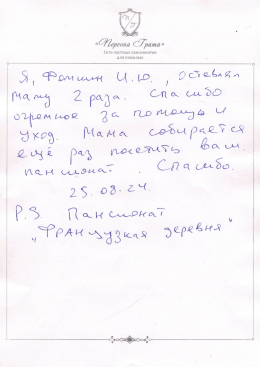 «Перспектива Грата»
сеть частных пансионатов
для пожилых
Я, Фомкин И.Ю., оставлял
маму 2 раза. Спасибо
огромное за помощь и
уход. Мама собирается
ещё раз посетить ваш
пансионат. Спасибо.
25.08.24.
P.S Пансионат
„Французкая деревня"